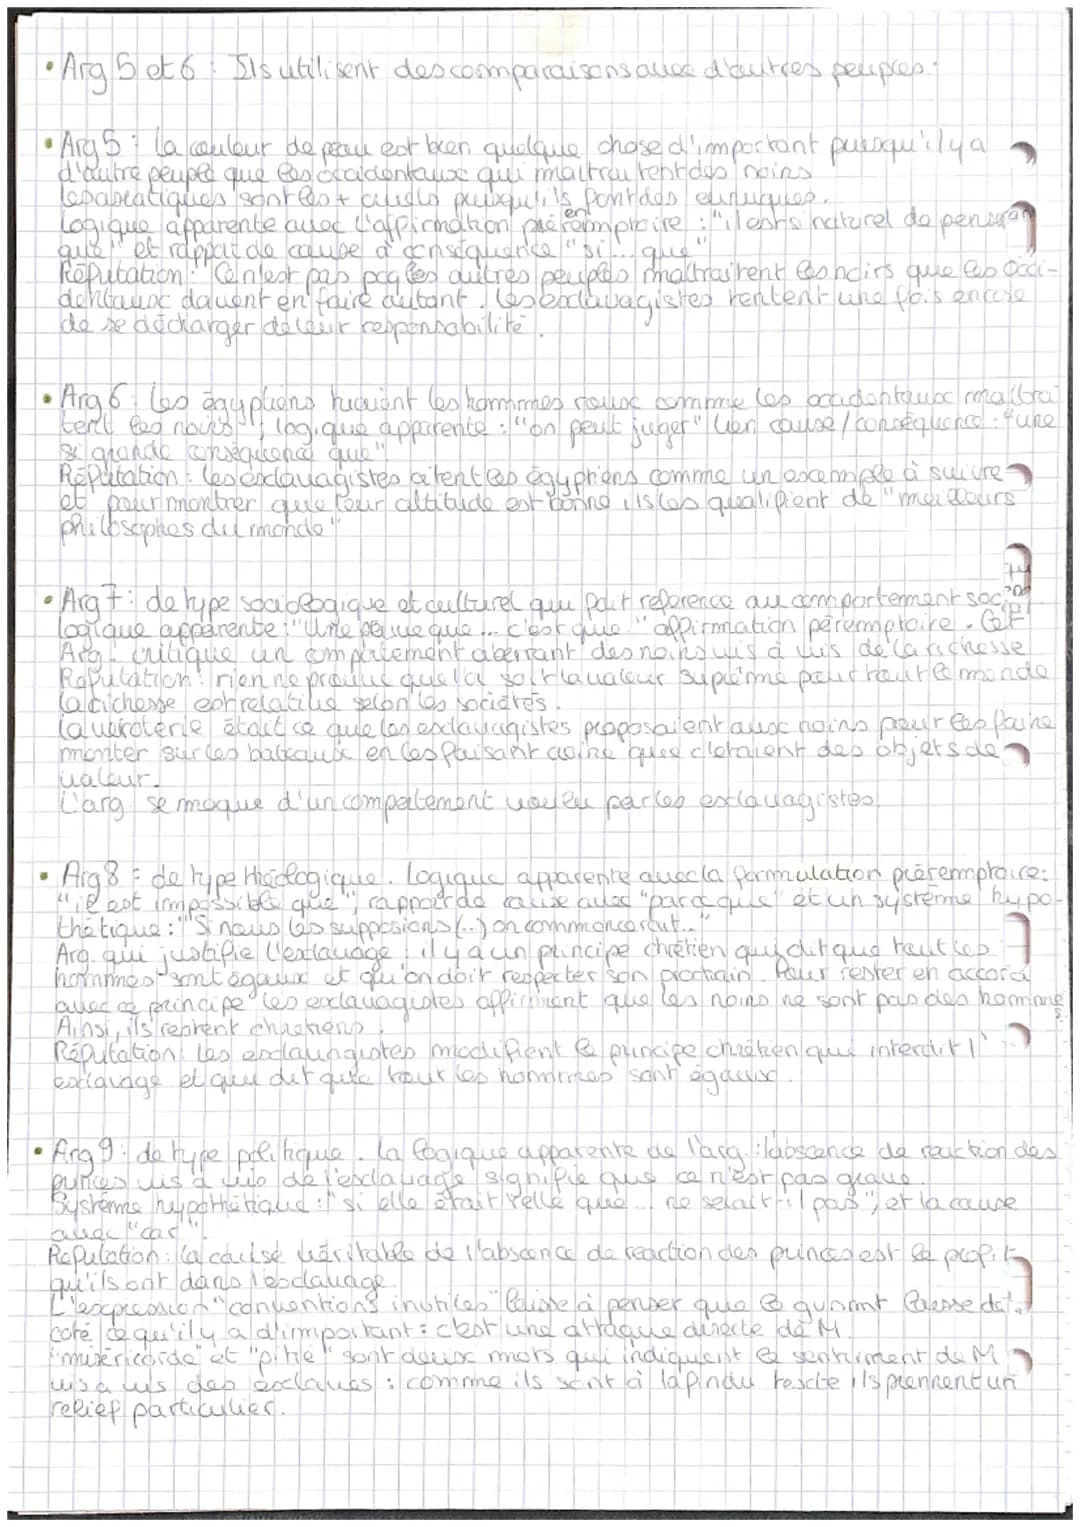 • Arg 5 et 6 : Ils utilisent des comparaisons avec d'autres peuples.
• Arg 5 : la couleur de peau est bien quelque chose d'important puisqu'il y a
d'autre peuple que les occidentaux qui maltraitent des noirs
les asiatiques sont les + cruels puisqu'ils font des eunuques.
Logique apparente avec l'affirmation péremptoire : "il est si naturel de penser
que" et rapport de cause à conséquence "si ... que"
Réfutation : Ce n'est pas pcq les autres peuples maltraitent les noirs que les occi-
dentaux doivent en faire autant. Les esclavagistes tentent une fois encore
de se décharger de leur responsabilité.
• Arg 6 : les égyptiens tuaient les hommes roux comme les occidentaux maltrai
tent les noirs", logique apparente : "on peut juger" lien cause/conséquence : "une
si grande conséquence que"
Réfutation : les esclavagistes citent les égyptiens comme un exemple à suivre
et pour montrer que leur attitude est bonne ils les qualifient de "meilleurs
philosophes du monde"
• Arg 7 : de type sociologique et culturel qui fait référence au comportement social
logique apparente : "Une preuve que ... c'est que" affirmation péremptoire. Cet
Arg. critique un comportement aberrant des noirs vis à vis de la richesse
Réfutation : rien ne prouve que la soit la valeur suprême pour tout le monde
la richesse est relative selon les sociétés.
La verroterie était ce que les esclavagistes proposaient aux noirs pour les faire
monter sur les bateaux en les faisant croire que c'étaient des objets de
valeur.
L'arg. se moque d'un comportement voulu par les esclavagistes
• Arg 8 : de type théologique. Logique apparente avec la formulation péremptoire :
"il est impossible que", rapport de cause avec "parce que" et un système hypo-
thétique : "Si nous les supposions (...) on commencerait..."
Arg. qui justifie l'esclavage : il y a un principe chrétien qui dit que tout les
hommes sont égaux et qu'on doit respecter son prochain. Pour rester en accord
avec ce principe les esclavagistes affirment que les noirs ne sont pas des hommes
Ainsi, ils restent chrétiens.
Réfutation : les esclavagistes modifient le principe chrétien qui interdit l'
esclavage et qui dit que tout les hommes sont égaux.
• Arg 9 : de type politique. La logique apparente de l'arg : l'abscence de réaction des
princes vis à vis de l'esclavage signifie que ce n'est pas grave.
Système hypothétique : "si elle était telle que ... ne serait-il pas", et la cause
avec "car".
Réfutation : la cause véritable de l'abscence de réaction des princes est le profit
qu'ils ont dans l'esclavage.
L'expression "conventions inutiles" laisse à penser que le laisse de
coté ce qu'il y a d'important : c'est une attaque directe de M
"miséricorde" et "pitié" sont deux mots qui indiquent le sentiment de M
vis à vis des esclaves : comme ils sont à la fin du texte ils prennent un
relief particulier.